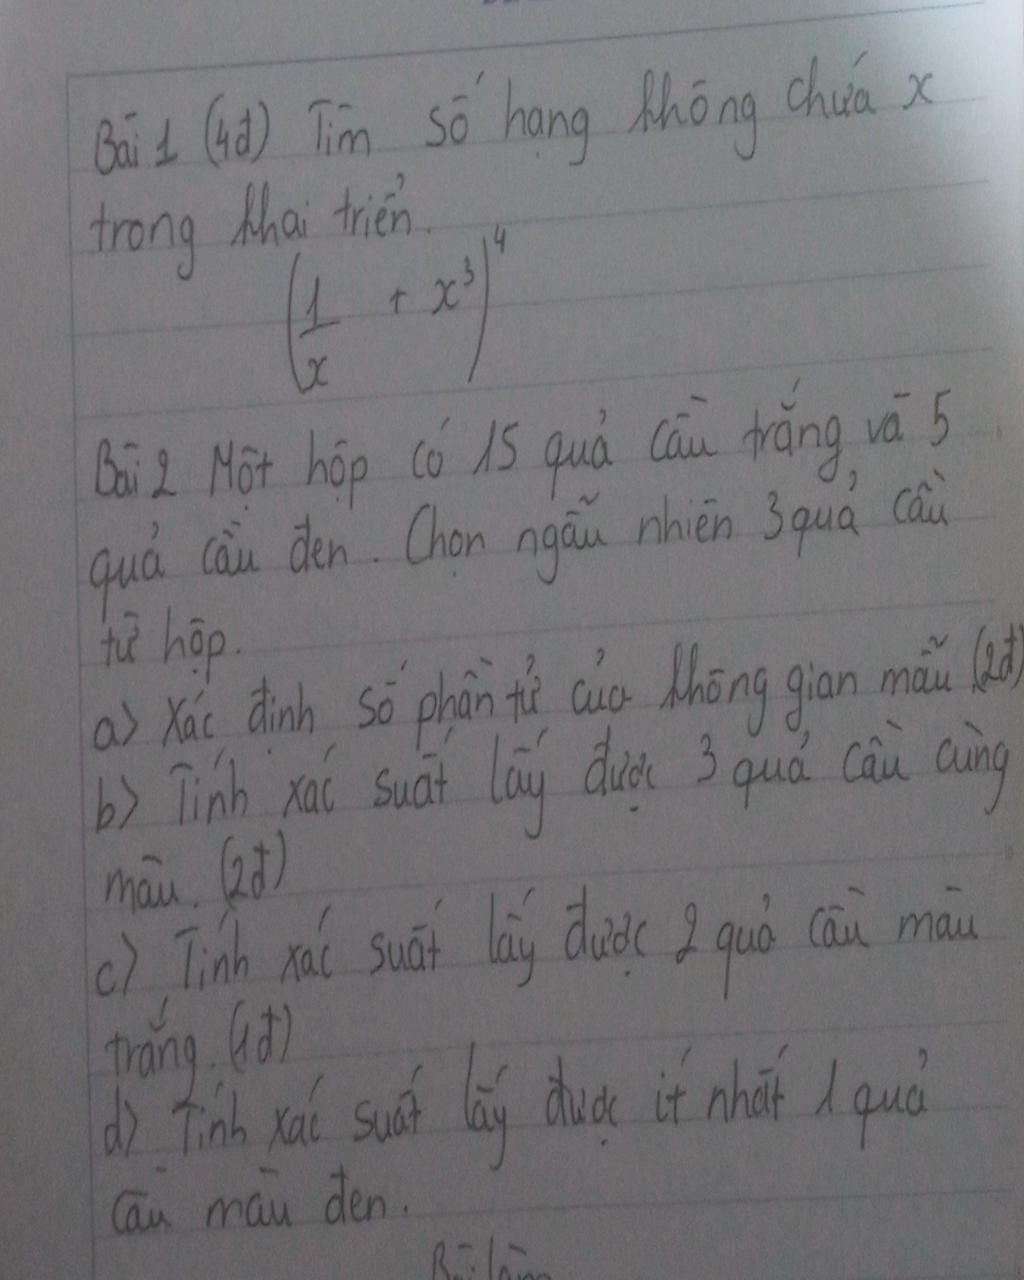 Bài 1 (4đ) Tìm số hạng không chứa x
trong khai triển.
(1/x + x³)⁴
Bài 2 Một hộp có 15 quả cầu trắng và 5
quả cầu đen. Chọn ngẫu nhiên 3 quả cầu
từ hộp.
a) Xác định số phần tử của không gian mẫu (2đ)
b) Tính xác suất lấy được 3 quả cầu cùng
màu. (2đ)
c) Tính xác suất lấy được 2 quả cầu màu
trắng. (1đ)
d) Tính xác suất lấy được ít nhất 1 quả
cầu màu đen.
Bài làm